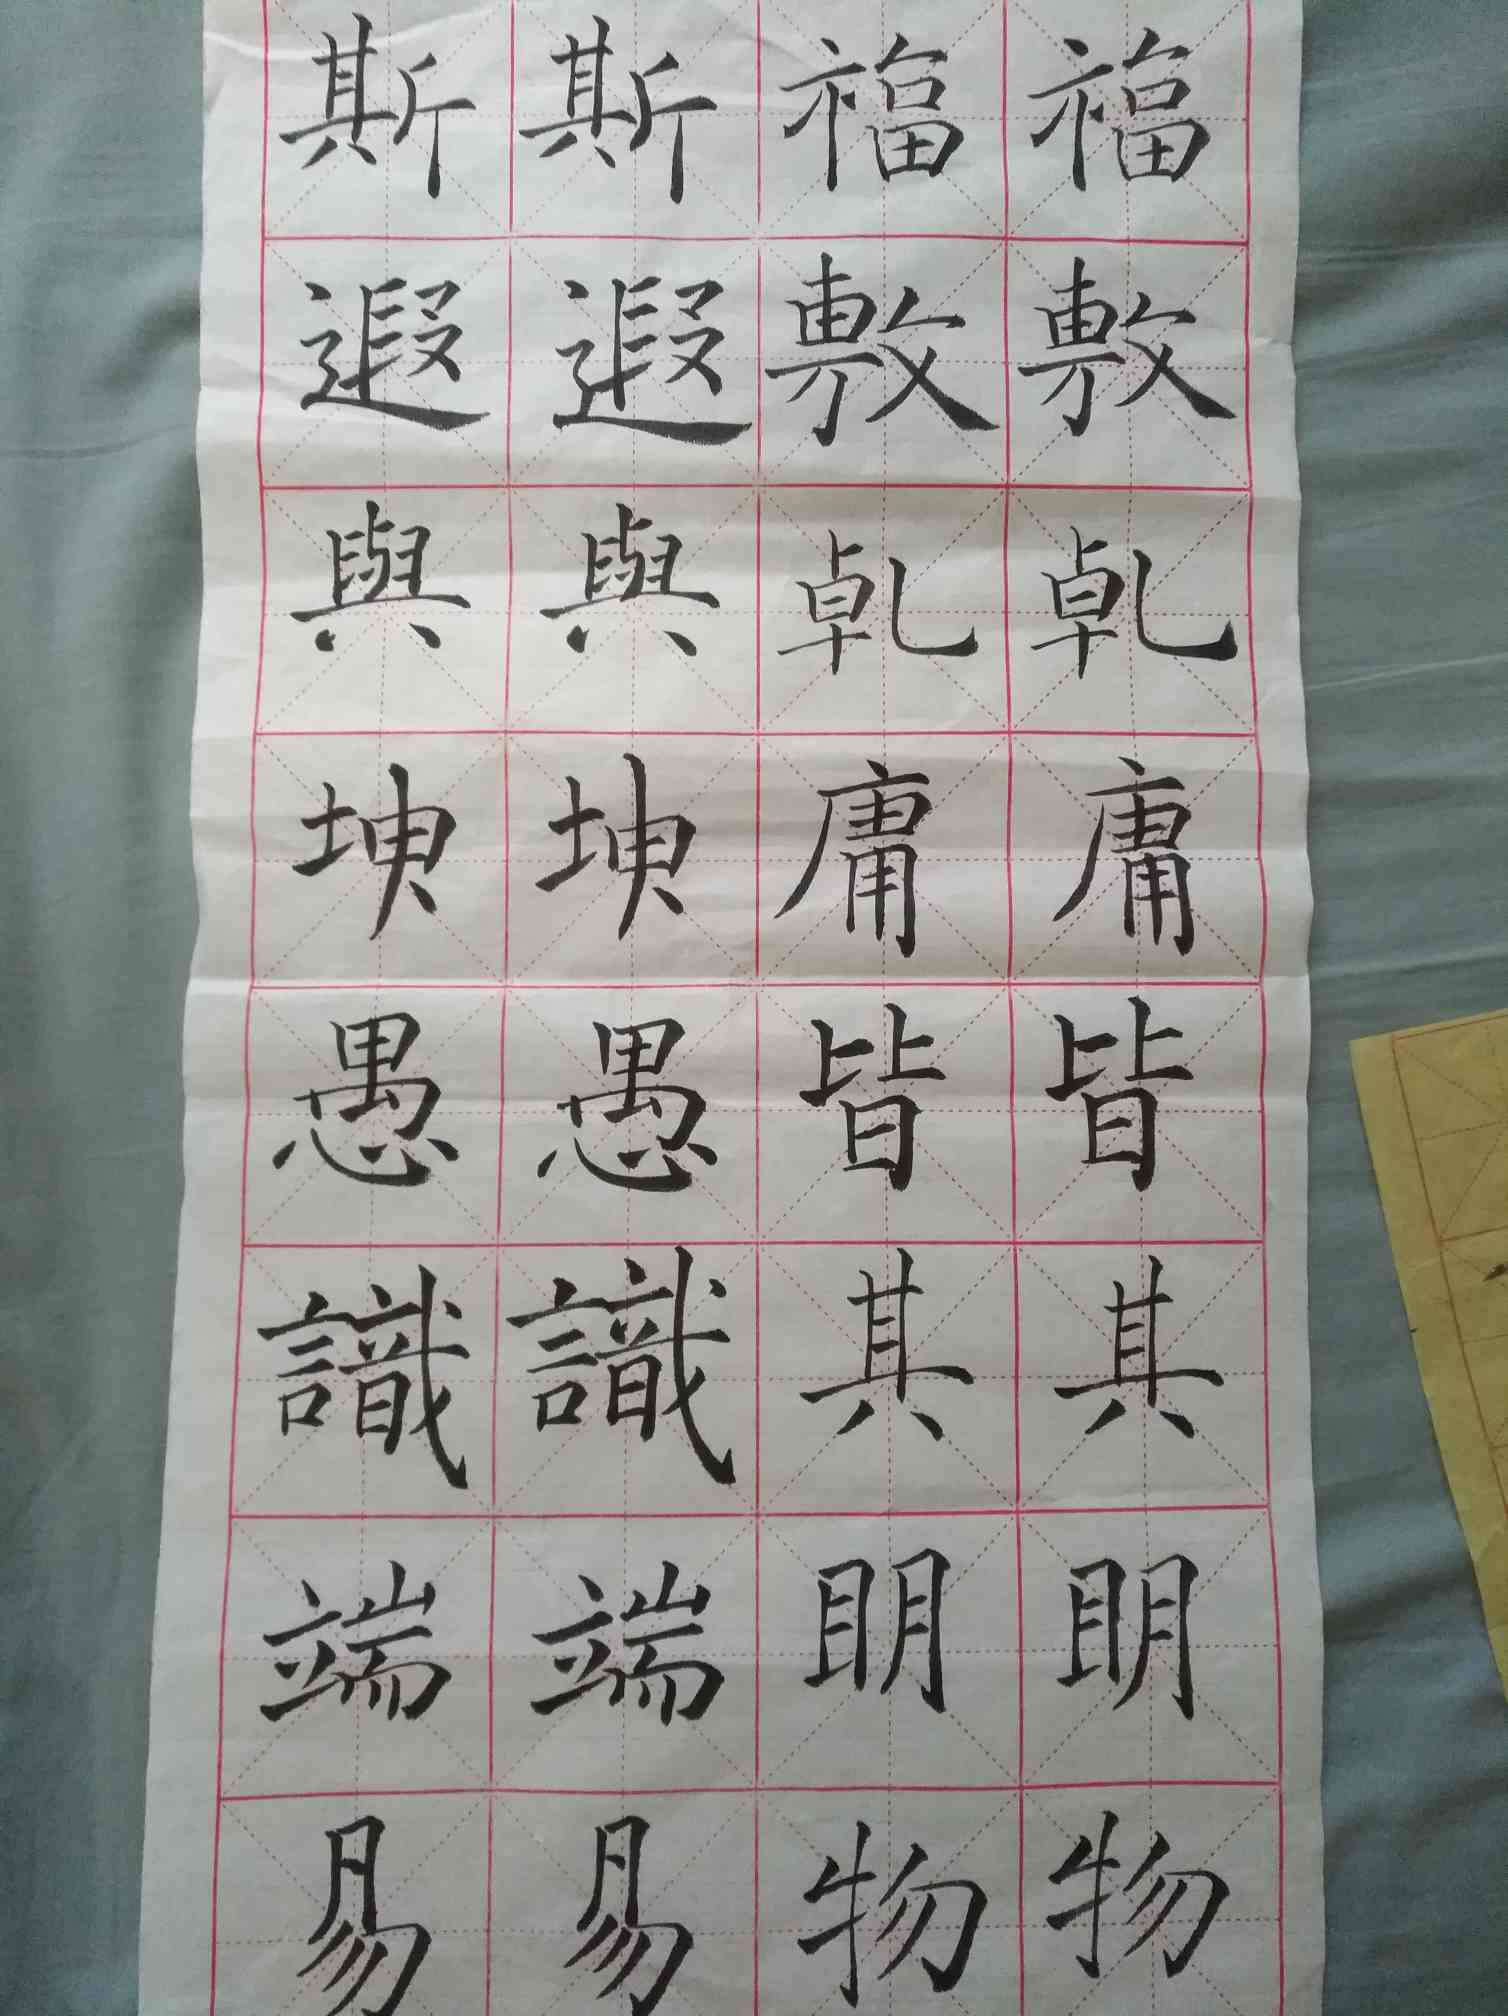 福敷乹庸皆其眀物
福敷乹庸皆其眀物
斯遐與坤愚識端易
斯遐與坤愚識端易